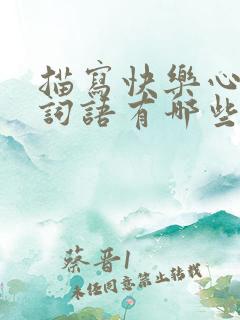 描寫快樂心
詞語有哪些
蔡晋1
未经同意禁止转载